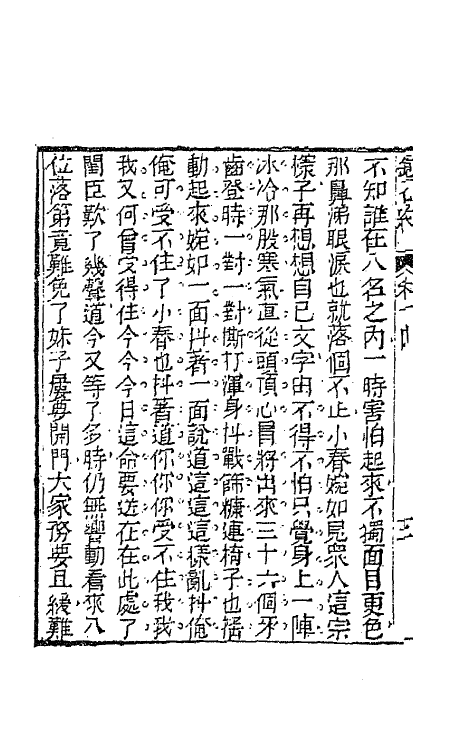 鏡花緣
不知誰在八名之內一時害怕起來不獨面目更色
那鼻涕眼淚也就落個不止小春婉如見眾人這宗
樣子再想想自己文字由不得不怕只覺身上一陣
冰冷那股寒氣直從頭頂心冒將出來三十六個牙
齒登時一對一對撕打渾身抖戰篩糠連椅子也搖
動起來婉如一面抖著一面說道這這這這樣亂抖俺
俺可受不住了小春也抖著道你你你受不住我我
我又何曾受得住今今今日這命要送在在此處了
閨臣歎了幾聲道今又等了多時仍無響動看來八
位落第竟難免了妹子屢要開門大家務要且緩難